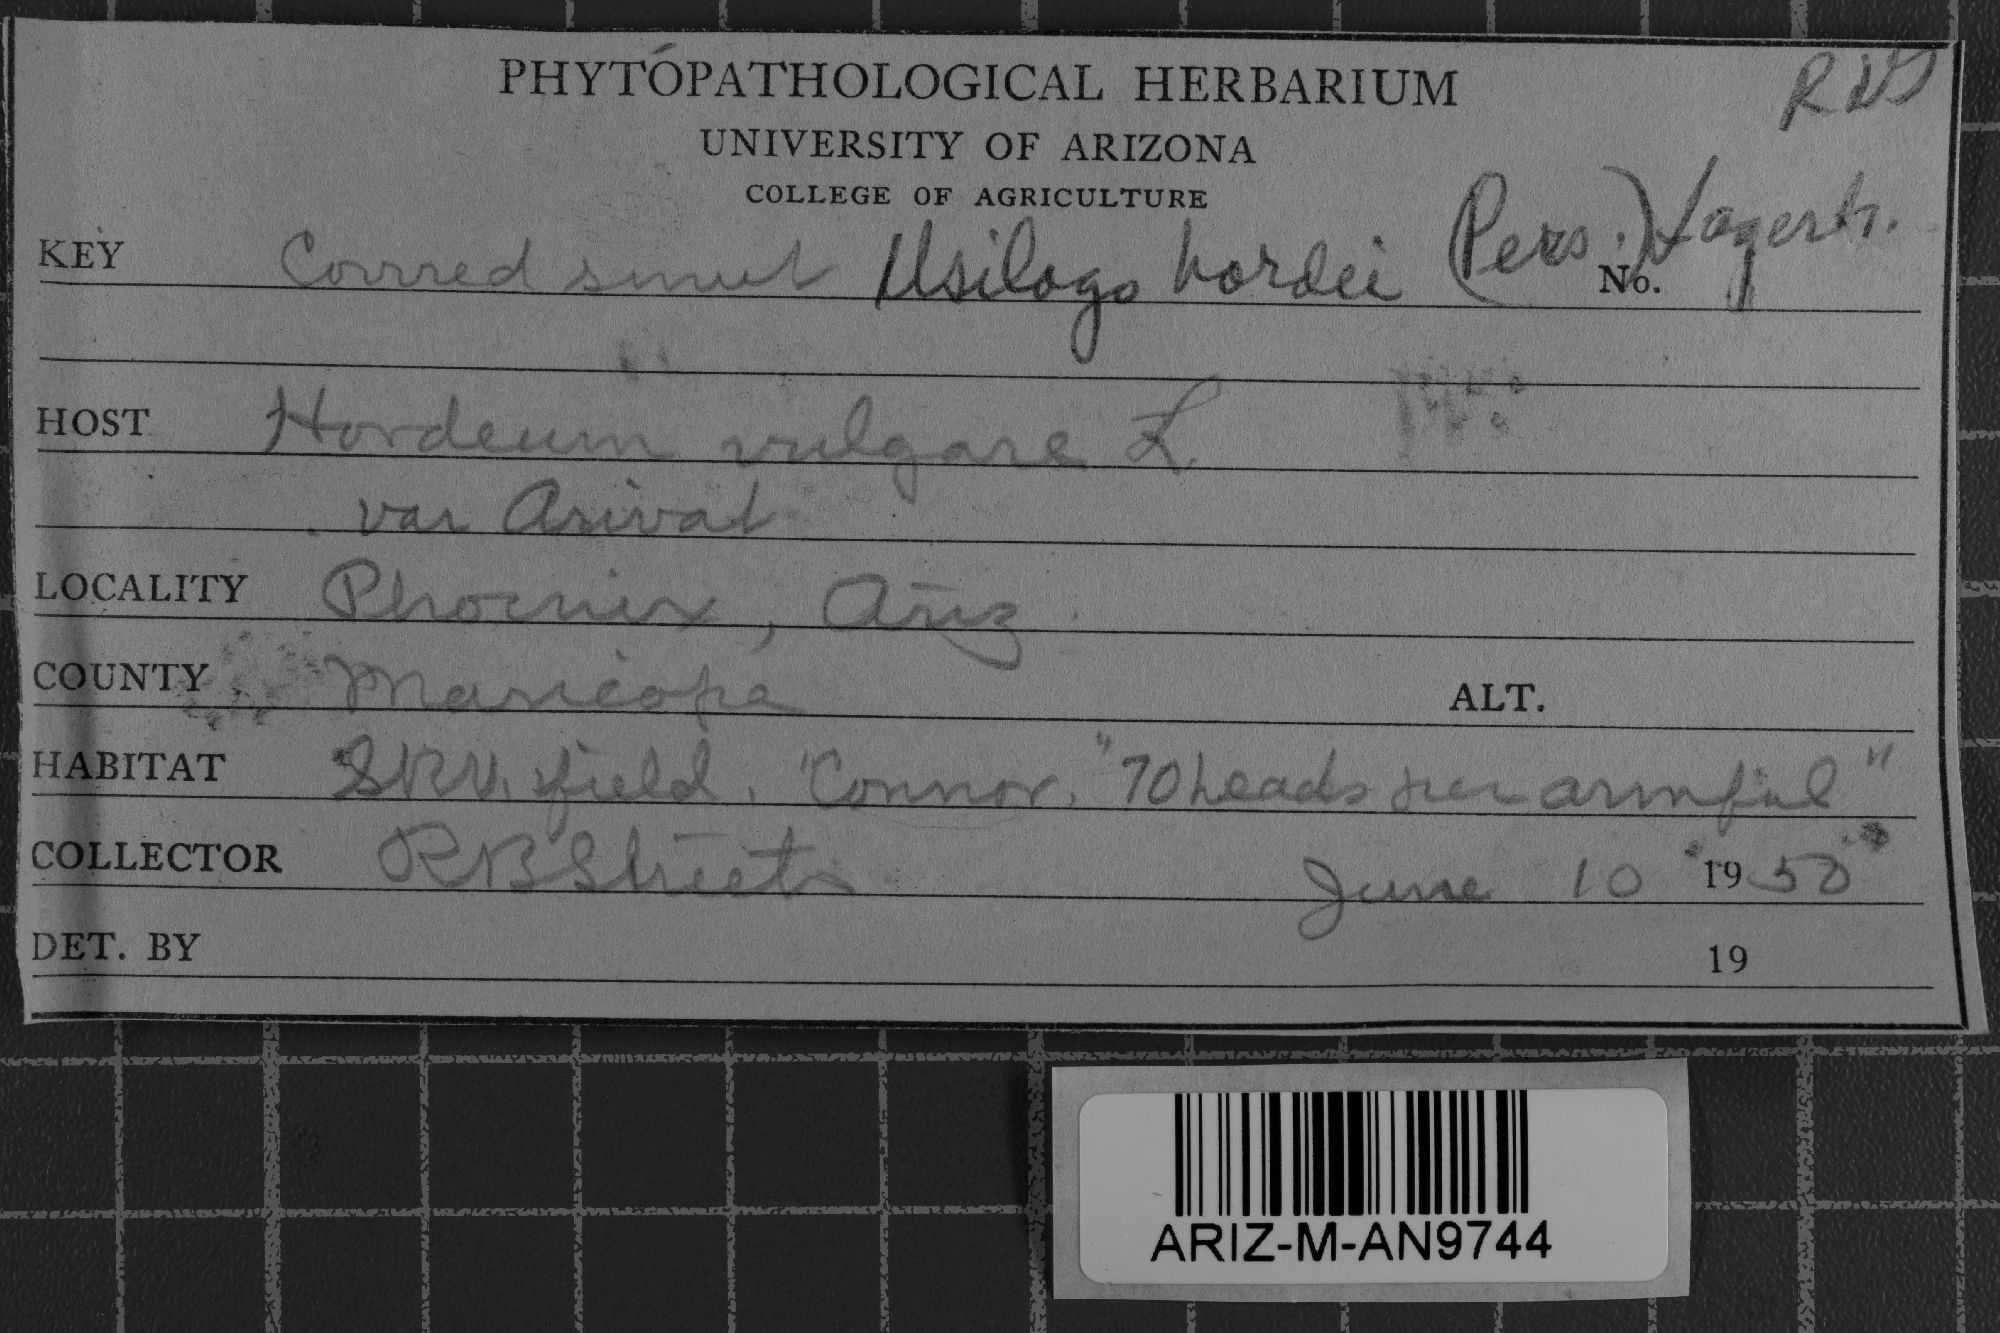 PHYTOPATHOLOGICAL HERBARIUM
UNIVERSITY OF ARIZONA
COLLEGE OF AGRICULTURE
KEY Covred smut Usilago hordei (Pers.) Lagerh. No.
HOST Hordeum vulgare L.
var Arivat
LOCALITY Phoenix, Ariz
COUNTY Maricopa ALT.
HABITAT S.R.V. field. Connor. "70 heads per armful"
COLLECTOR RB Streets June 10 1950
DET. BY 19
ARIZ-M-AN9744